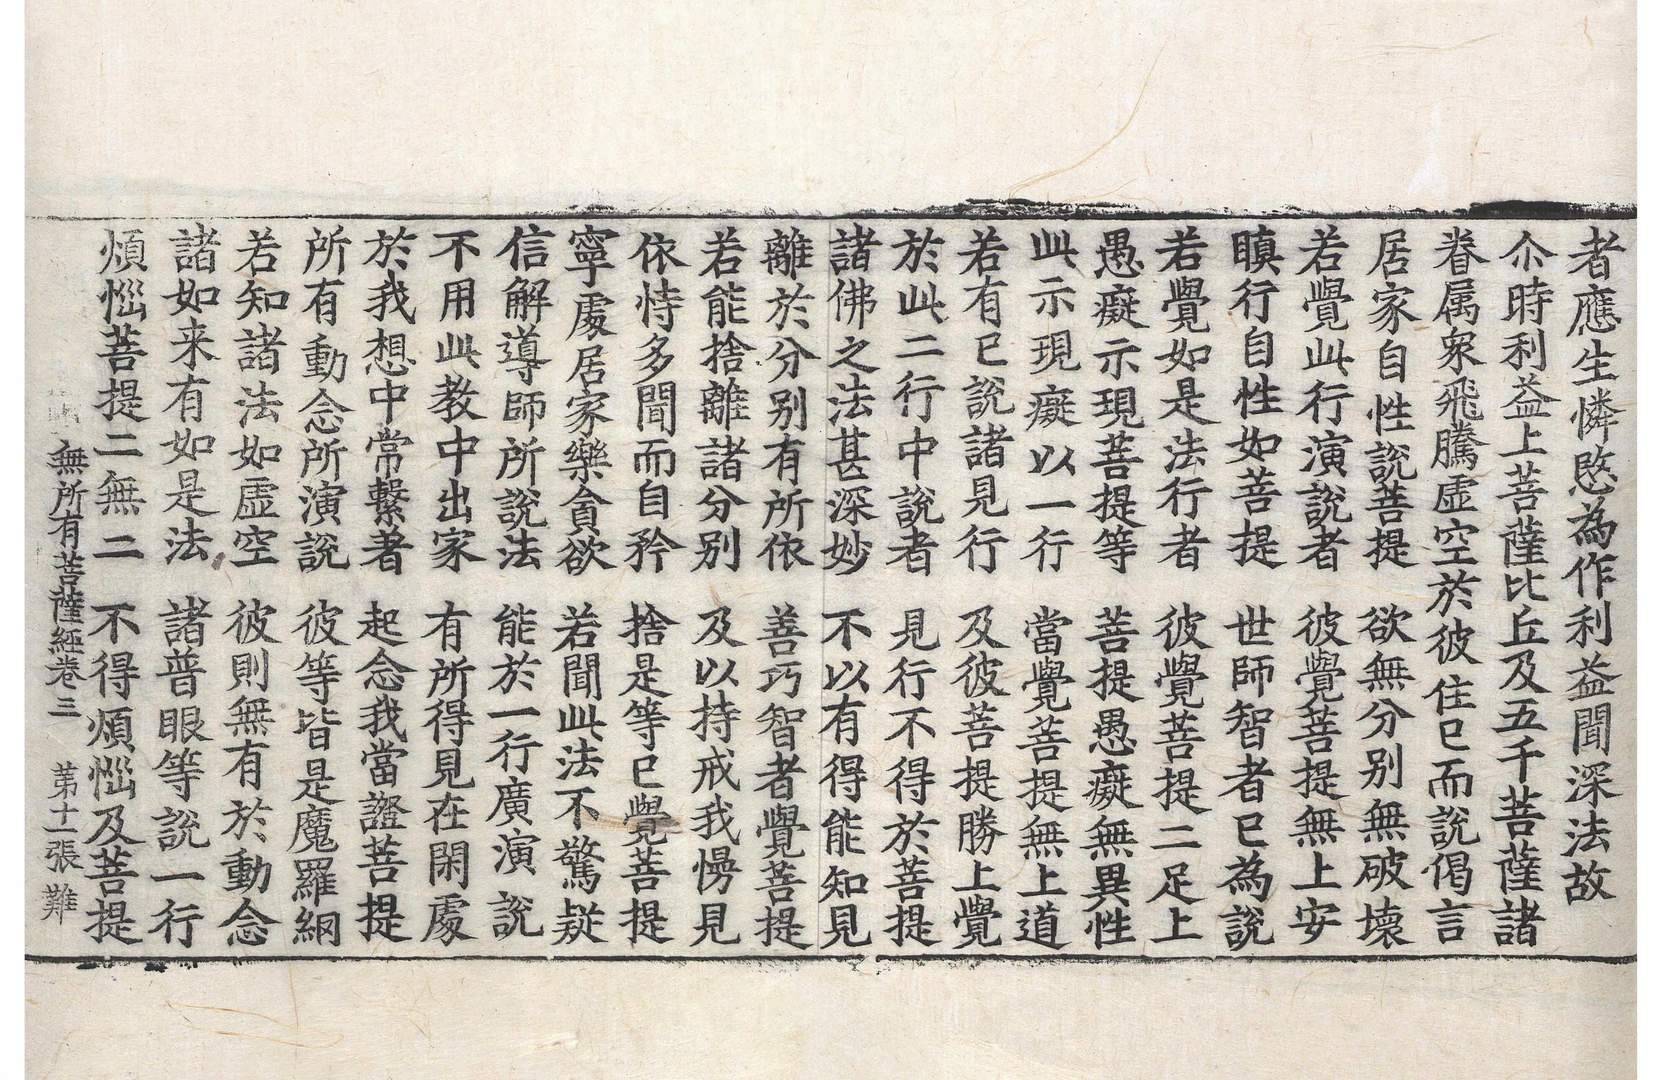 者應生憐愍為作利益聞深法故
尒時利益上菩薩比丘及五千菩薩諸
眷属衆飛騰虛空於彼住已而說偈言
居家自性說菩提　欲無分別無破壞
若覺此行演說者　彼覺菩提無上安
瞋行自性如菩提　世師智者已為說
若覺如是法行者　彼覺菩提二足上
愚癡示現菩提等　菩提愚癡無異性
此示現癡以一行　當覺菩提無上道
若有已說諸見行　及彼菩提勝上覺
於此二行中說者　見行不得於菩提
諸佛之法甚深妙　不以有得能知見
離於分別有所依　善巧智者覺菩提
若能捨離諸分別　及以持戒我慢見
依恃多聞而自矜　捨是等已覺菩提
寧處居家樂貪欲　若聞此法不驚疑
信解導師所說法　能於一行廣演說
不用此教中出家　有所得見在閑處
於我想中常繫著　起念我當證菩提
所有動念所演說　彼等皆是魔羅網
若知諸法如虛空　彼則無有於動念
諸如来有如是法　諸普眼等說一行
煩惱菩提二無二　不得煩惱及菩提
無所有菩薩經卷三　第十一張　難